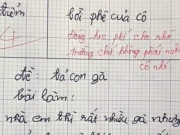 điểm
lời phê của cô
4
đừng lạc phí cho nhé
trường chứ không phải nuôi
cô nhé!
đề tả con gà
bài làm:
nhà em thì rất nhiều gà nhưng